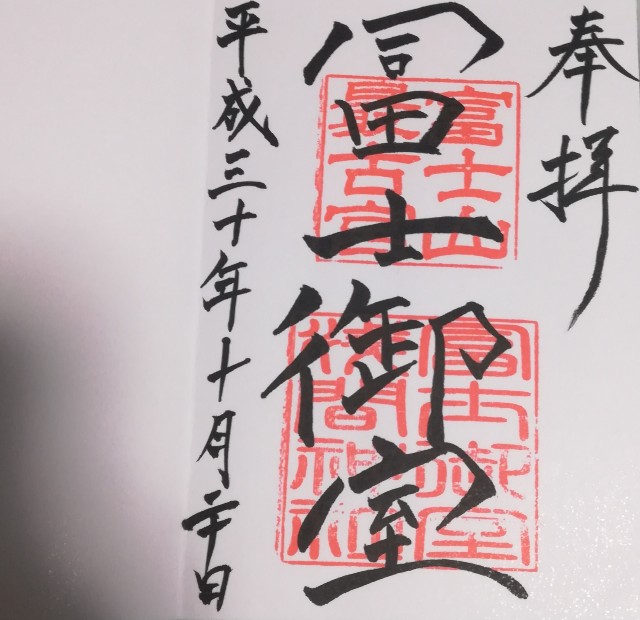 奉拝
冨士御室
富士山
最古宮
富士御室
淺間神社
平成三十年十月二十日